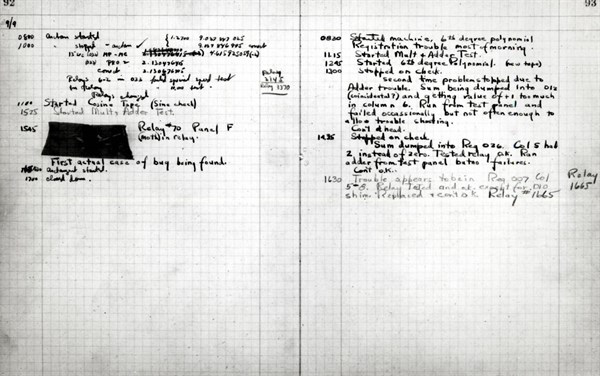 92
9/9
0800 Antan started
1000 " stopped - antan ✓ { 1.2700 9.037 847 025
9.037 846 995 correct
13"uc (032) MP-MC 4.615925059(-2)
(033) PRO 2 2.130476415
correct 2.130676415
Relays 6-2 in 033 failed special speed test
in Relay " test.
Relays changed
Relay
2145
Relay 3370
1100 Started Cosine Tape (Sine check)
1525 Started Multy Adder Test.
1545 Relay #70 Panel F
(moth) in relay.
First actual case of bug being found.
antangent started.
1700 closed down.
93
0830 Started machine, 6th degree polynomial
Registration trouble most of morning.
1215 Started Mult + Adder Test.
1245 Started 6th degree Polynomial. (new tape)
1300 Stopped on check.
second time problem stopped due to
Adder trouble. Sum being dumped into 012
(coincidental?) and getting value off +1 too much
in column 6. Run from test panel and
failed occassionally but not often enough to
allow trouble shooting.
Cont'd ahead.
1425 Stopped on check.
Sum dumped into Reg 036. Col 5 had
2 instead of zero. Tested relay O.K. Ran
adder from test panel failures.
Cont O.K.
1630 Trouble appears to be in Reg 037 Col Relay
5-3. Relay tested and ok. except for 1665
shim. Replaced + cont O.K. Relay #1665